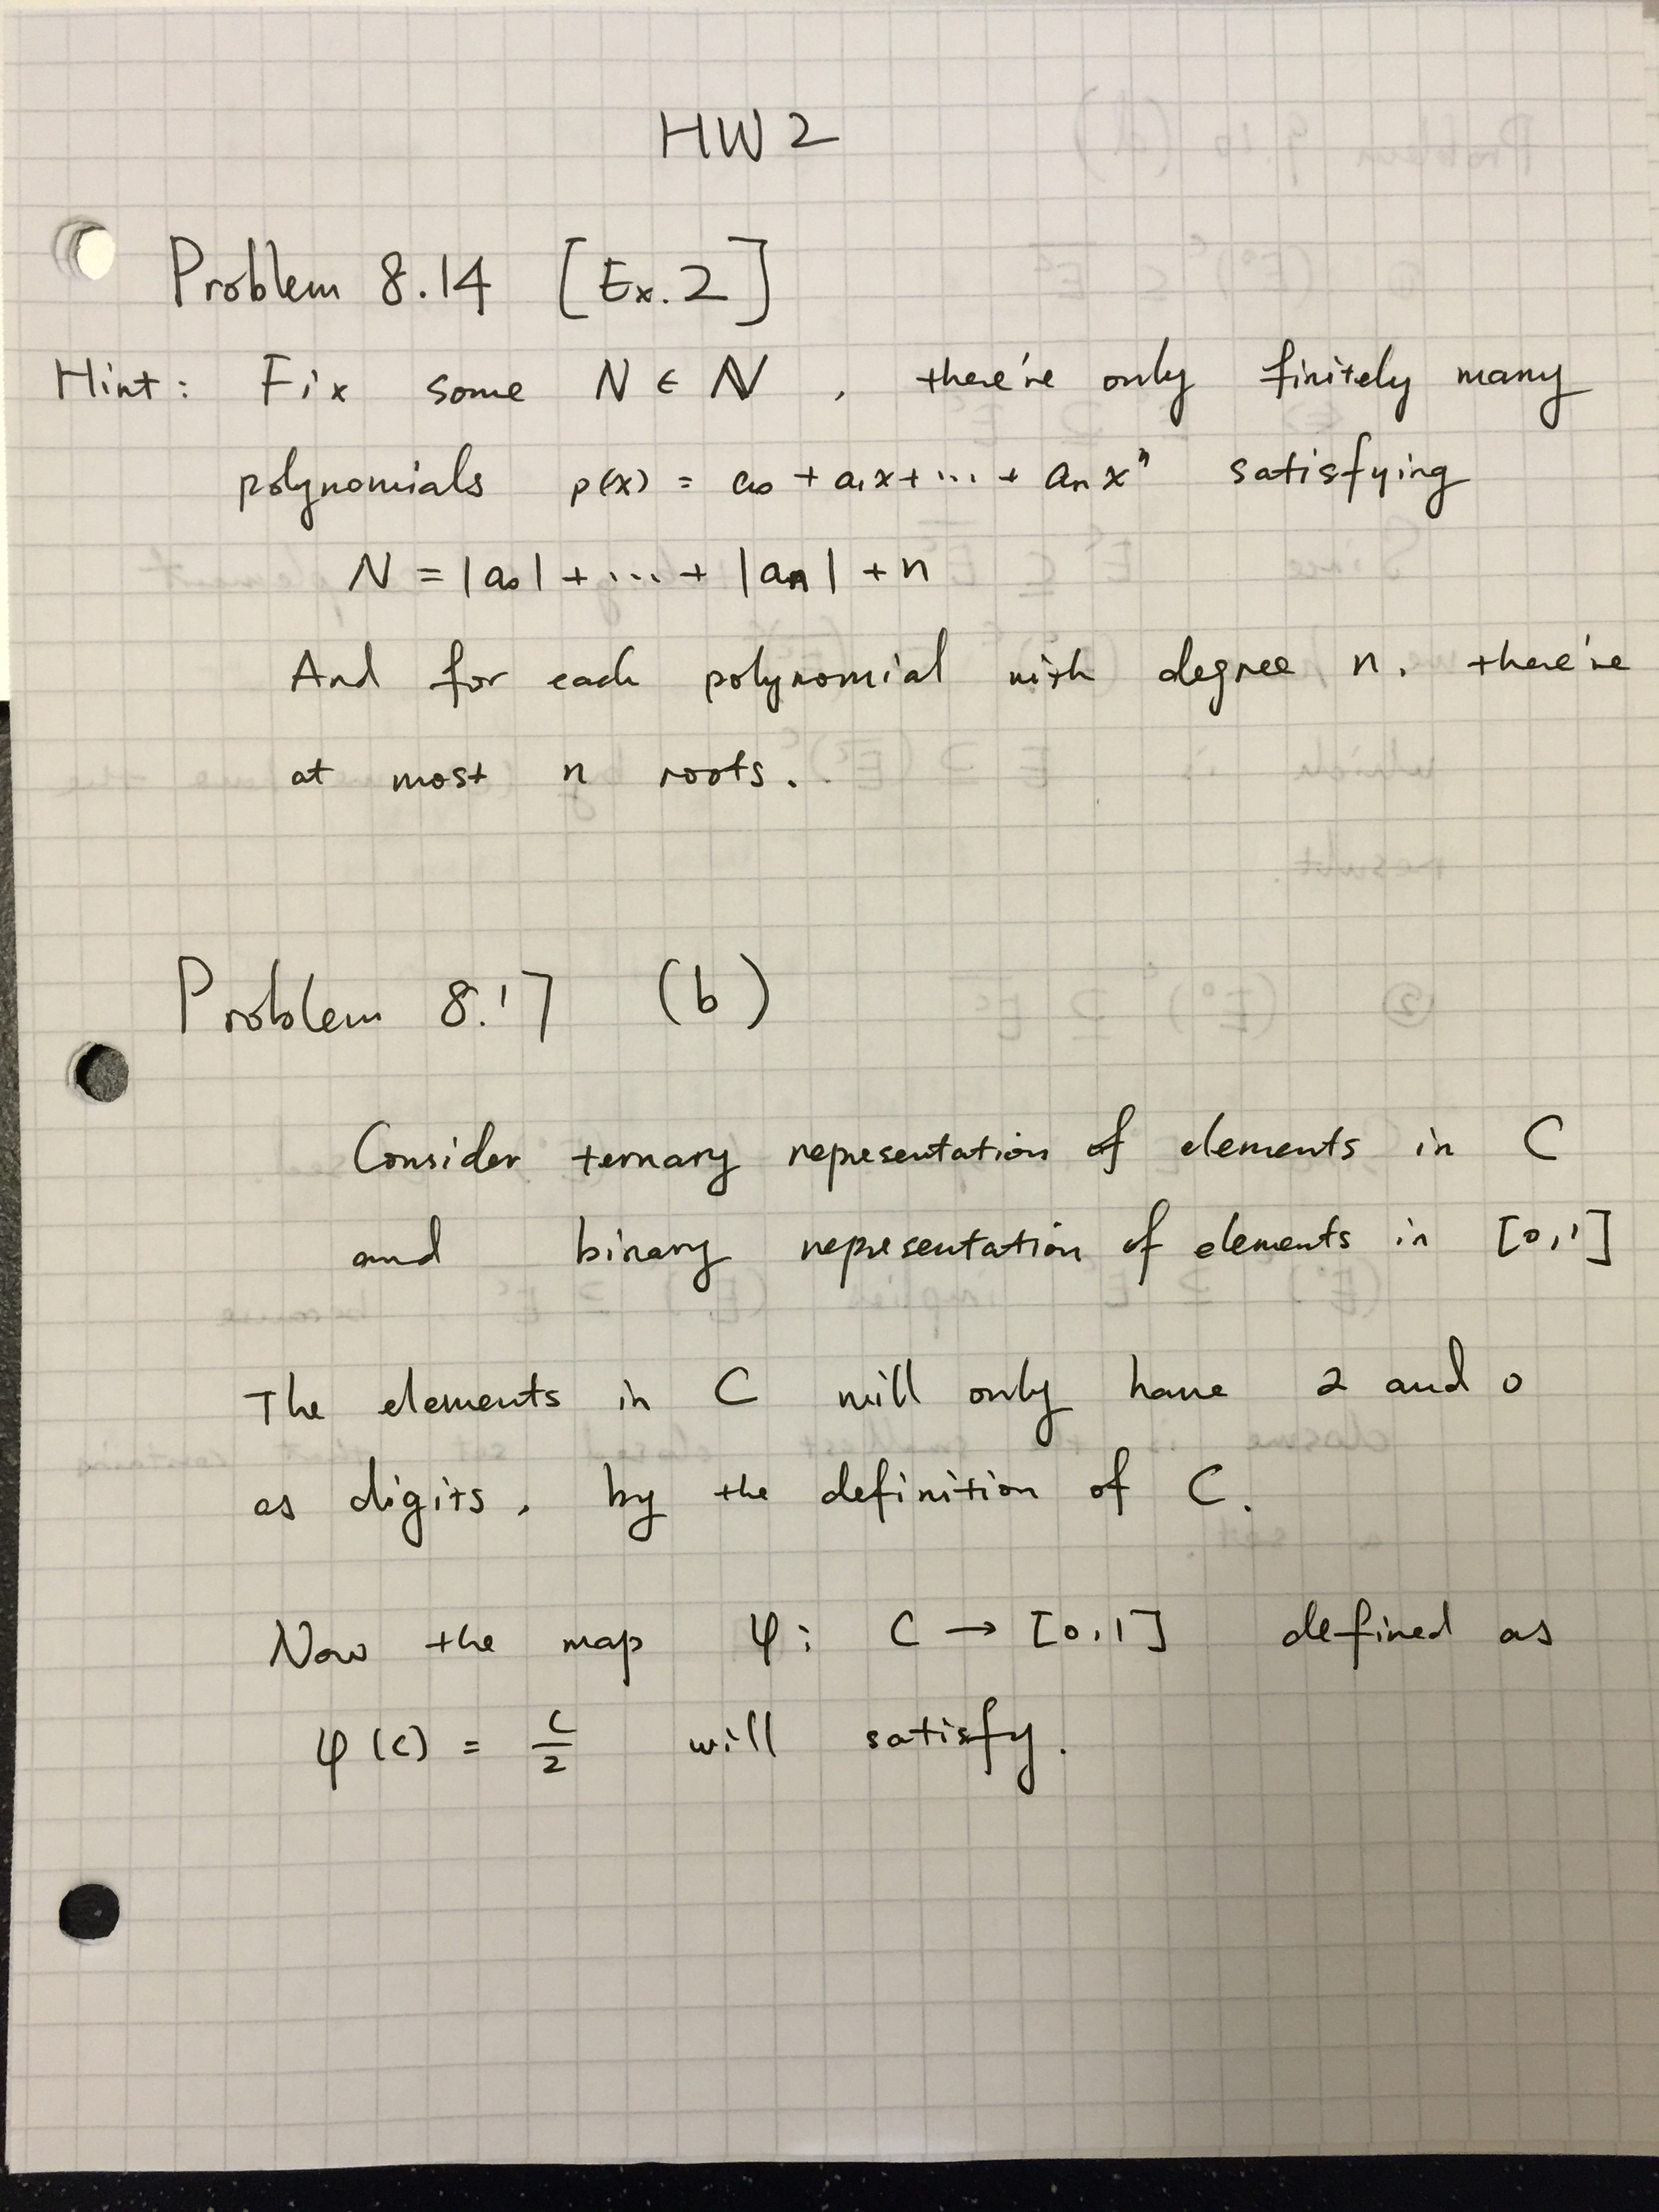 HW 2
Problem 8.14 [Ex. 2]
Hint: Fix some N ∈ ℕ, there're only finitely many
polynomials p(x) = a₀ + a₁x + ... + aₙxⁿ satisfying
N = |a₀| + ... + |aₙ| + n
And for each polynomial with degree n, there're
at most n roots.
Problem 8.17 (b)
Consider ternary representation of elements in C
and binary representation of elements in [0,1]
The elements in C will only have 2 and 0
as digits, by the definition of C.
Now the map φ: C → [0,1] defined as
φ(c) = c/2 will satisfy.